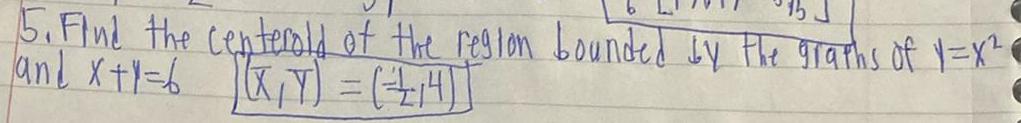 5. Find the centeroid of the region bounded by the graphs of y=x²
and x+y=6 [(x̄,ȳ) = (-1/2,4)]